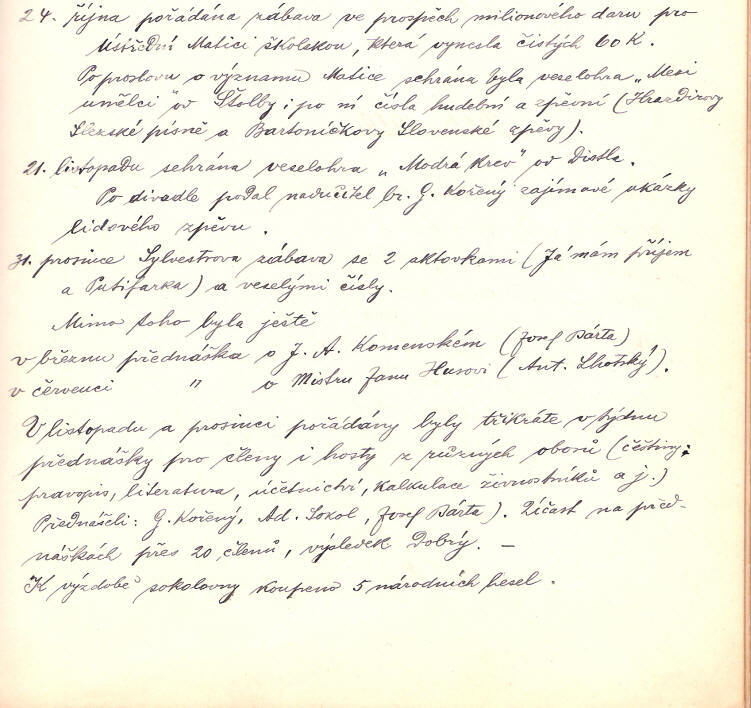 24. října pořádána zábava ve prospěch milionového daru pro
Ústřední Matici školskou, která vynesla čistých 60 K.
Po proslovu o významu Matice sehrána byla veselohra „Mezi
umělci" od Štolby; po ní čísla hudební a zpěvní (Hrazdirovy
Slezské písně a Bartoníčkovy Slovenské zpěvy).
21. listopadu sehrána veselohra „Modrá krev" od Distla.
Po divadle podal nadučitel br. G. Kořený zajímavé ukázky
lidového zpěvu.
31. prosince Sylvestrova zábava se 2 aktovkami (Já mám příjem
a Putifarka) a veselými čísly.
Mimo toho byla ještě
v březnu přednáška o J. A. Komenském (Josef Bárta)
v červenci " o Mistru Janu Husovi (Ant. Lhotský).
V listopadu a prosinci pořádány byly třikráte v týdnu
přednášky pro členy i hosty z různých oborů (čeština:
pravopis, literatura, účetnictví, kalkulace živnostníků a j.)
Přednášeli: G. Kořený, Ad. Sokol, Josef Bárta). Účast na před-
náškách přes 20 členů, výsledek dobrý. —
K výzdobě sokolovny koupeno 5 národních hesel.